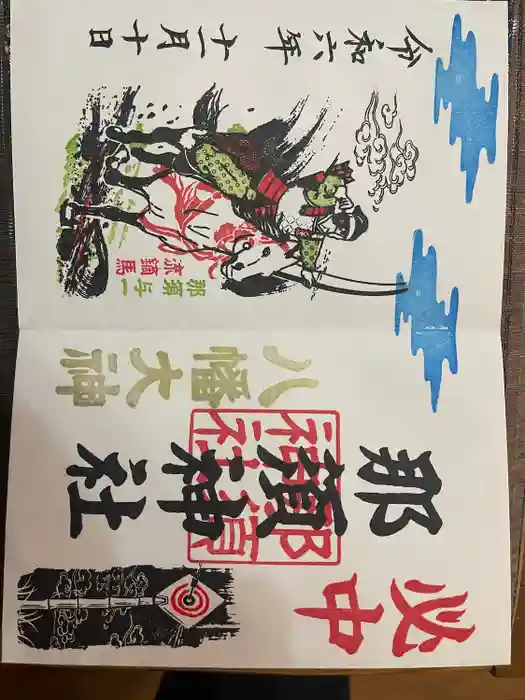 必中
那須神社
那須神社
八幡大神
那須与一
流鏑馬
令和六年 十一月十日